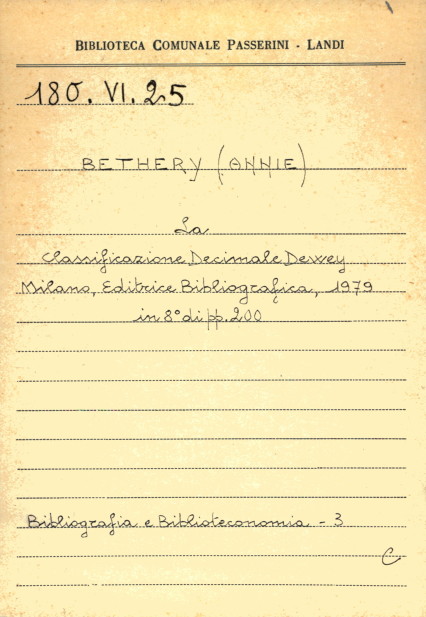 BIBLIOTECA COMUNALE PASSERINI - LANDI
180. VI. 25
BETHERY (ANNIE)
La
Classificazione Decimale Dewey
Milano, Editrice Bibliografica, 1979
in 8° di pp. 200
Bibliografia e Biblioteconomia - 3
C